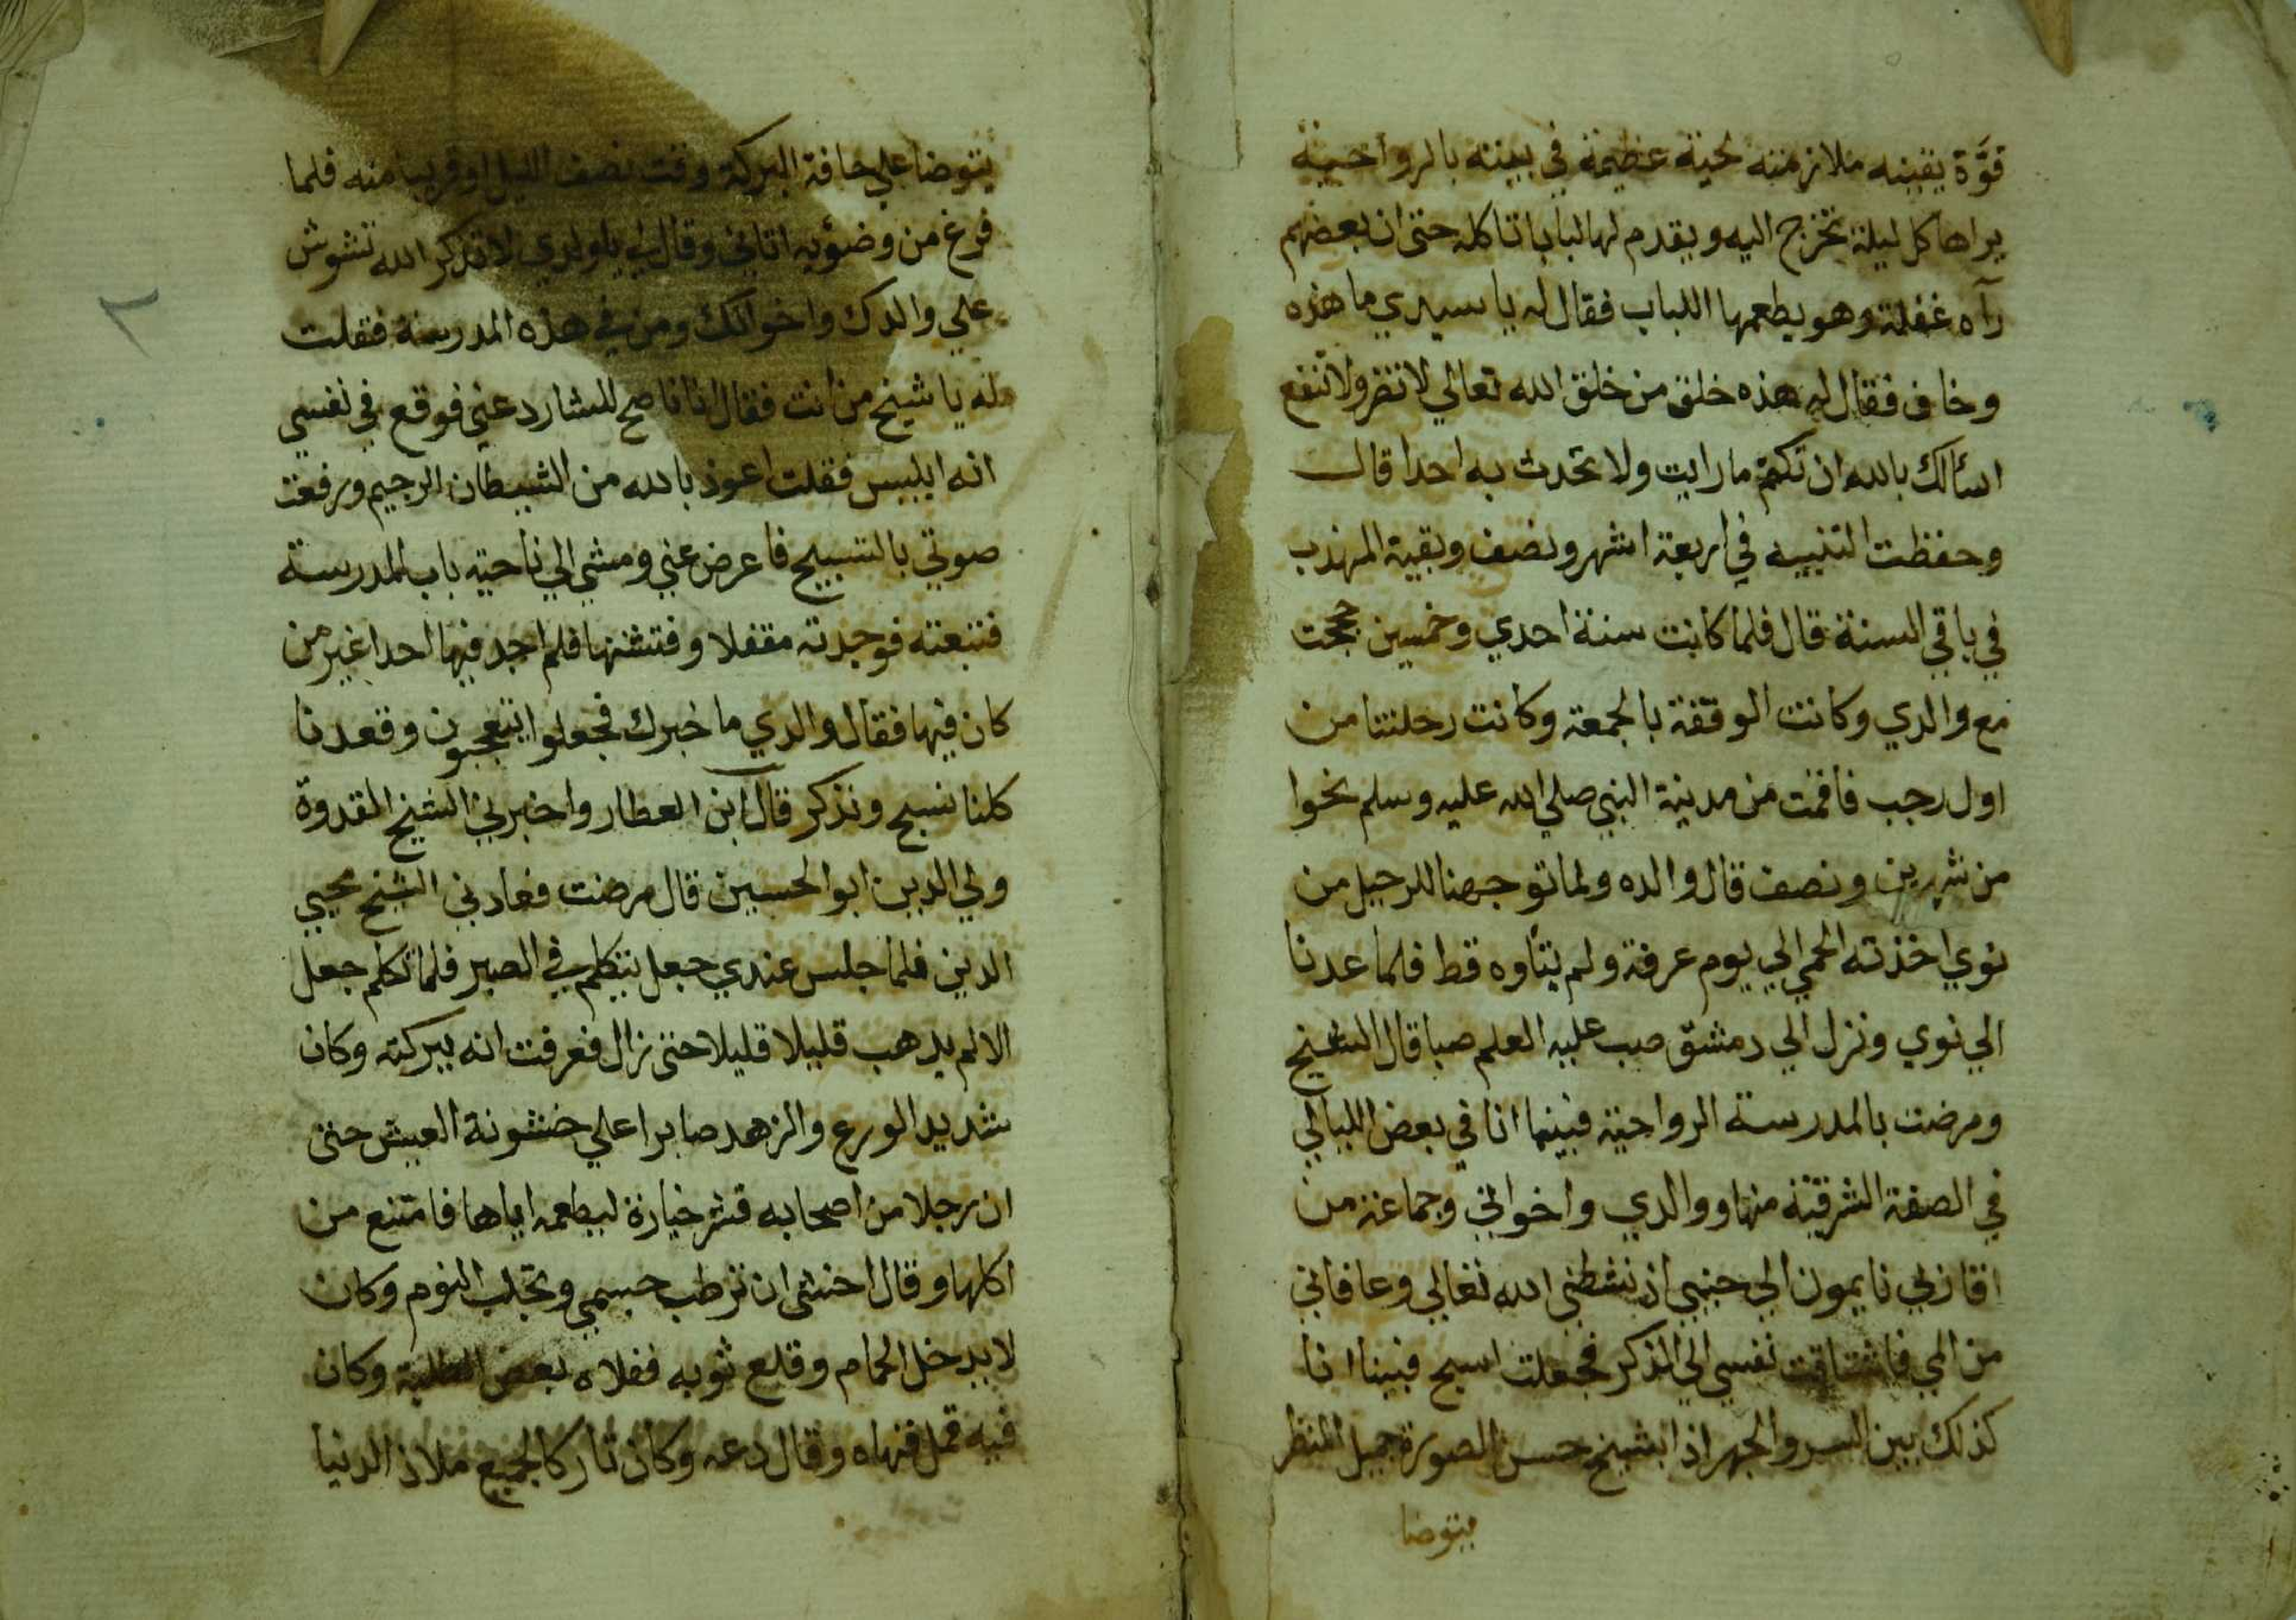 قوة يقينه ملازمته لحية عظيمة في بيته بالرواحية
يراها كل ليلة تخرج اليه ويقدم لها لبابا تاكله حتى ان بعضهم
رآه غفلة وهو يطعمها اللباب فقال له يا سيدي ما هذه
وخاف فقال له هذه خلق من خلق الله تعالي لا تضر ولا تنفع
اسألك بالله ان تكتم ما رايت ولا تحدث به احدا قال
وحفظت التنبيه في اربعة اشهر ونصف وبقية المهذب
في باقي السنة قال فلما كانت سنة احدي وخمسين حججت
مع والدي وكانت الوقفة بالجمعة وكانت رحلتنا من
اول رجب فاقمت من مدينة النبي صلي الله عليه وسلم نحوا
من شهرين ونصف قال والده ولما توجهنا للرحيل من
نوي اخذته الحمي الي يوم عرفة ولم يتأوه قط فلما عدنا
الي نوي ونزل الي دمشق صب عليه العلم صبا قال الشيخ
ومرضت بالمدرسة الرواحية فبينما انا في بعض الليالي
في الصفة الشرقية منها ووالدي واخواتي وجماعة من
اقاربي نايمون الي جنبي اذ نشطني الله تعالي وعافاني
من المي فاشتاقت نفسي الي الذكر فجعلت اسبح فبينا انا
كذلك بين السر والجهر اذا بشيخ حسن الصورة جميل المنظر
يتوضا
يتوضا علي حافة البركة وقت نصف الليل او قريبا منه فلما
فرغ من وضؤيه اتاني وقال لي يا ولدي لا تذكر الله تشوش
علي والدك واخوانك ومن في هذه المدرسة فقلت
له يا شيخ من انت فقال انا ناصح لك شارد عني فوقع في نفسي
انه ابليس فقلت اعوذ بالله من الشيطان الرجيم ورفعت
صوتي بالتسبيح فاعرض عني ومشي الي ناحية باب المدرسة
فتبعته فوجدته مقفلا وفتشتها فلم اجد فيها احدا غير من
كان فيها فقال والدي ما خبرك فجعلوا يتعجبون وقعدنا
كلنا نسبح ونذكر قال ابن العطار واخبرني الشيخ القدوة
ولي الدين ابو الحسين قال مرضت فعادني الشيخ محيي
الدين فلما جلس عندي جعل يتكلم في الصبر فلما تكلم جعل
الالم يذهب قليلا قليلا حتى زال فعرفت انه ببركته وكان
شديد الورع والزهد صابرا علي خشونة العيش حتى
ان رجلا من اصحابه قشر خيارة ليطعمه اياها فامتنع من
اكلها وقال اخشى ان ترطب جسمي وتجلب النوم وكان
لا يدخل الحمام وقلع ثوبه ففلاه بعض الطلبة وكان
فيه قمل فنهاه وقال دعه وكان تاركا لجميع ملاذ الدنيا